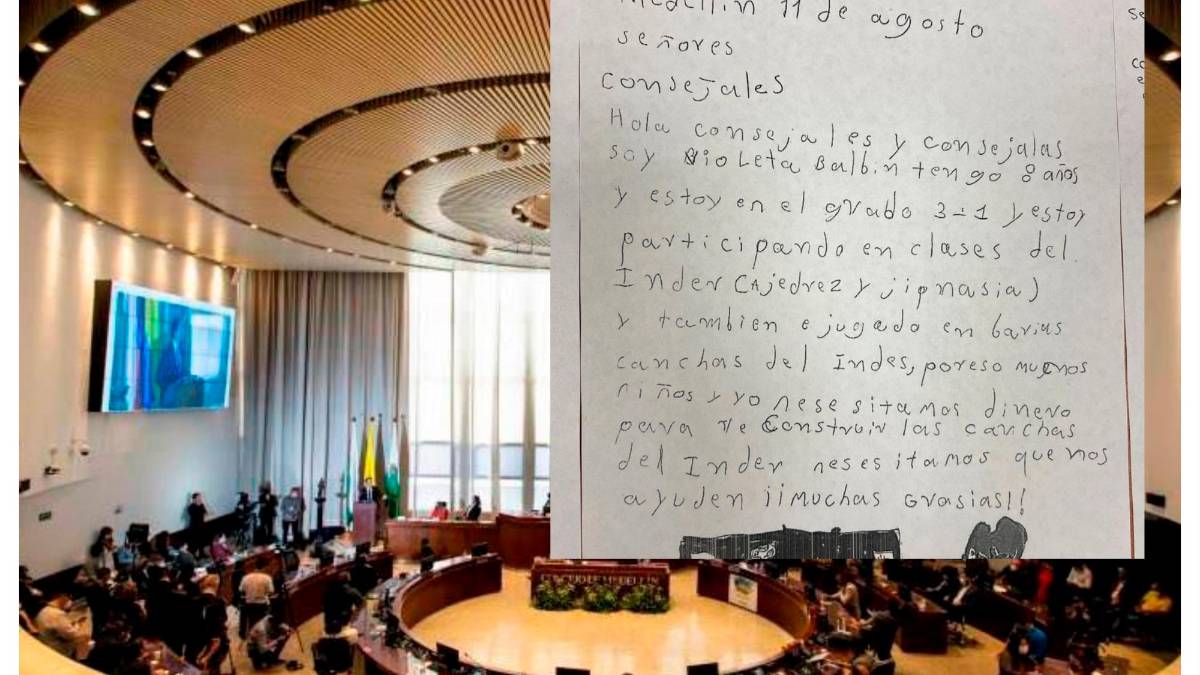 Medellin 11 de agosto
señores
consejales
Hola consejales y consejalas
soy violeta Balbin tengo 8 años
y estoy en el grado 3-1 y estoy
participando en clases del
Inder (Ajedrez y jipnasia)
y tambien e jugado en barias
canchas del Indes, por eso muchos
niños y yo nesesitamos dinero
para reconstruir las canchas
del Inder nesesitamos que nos
ayuden ¡¡muchas grasias!!
CONCEJO DE MEDELLÍN